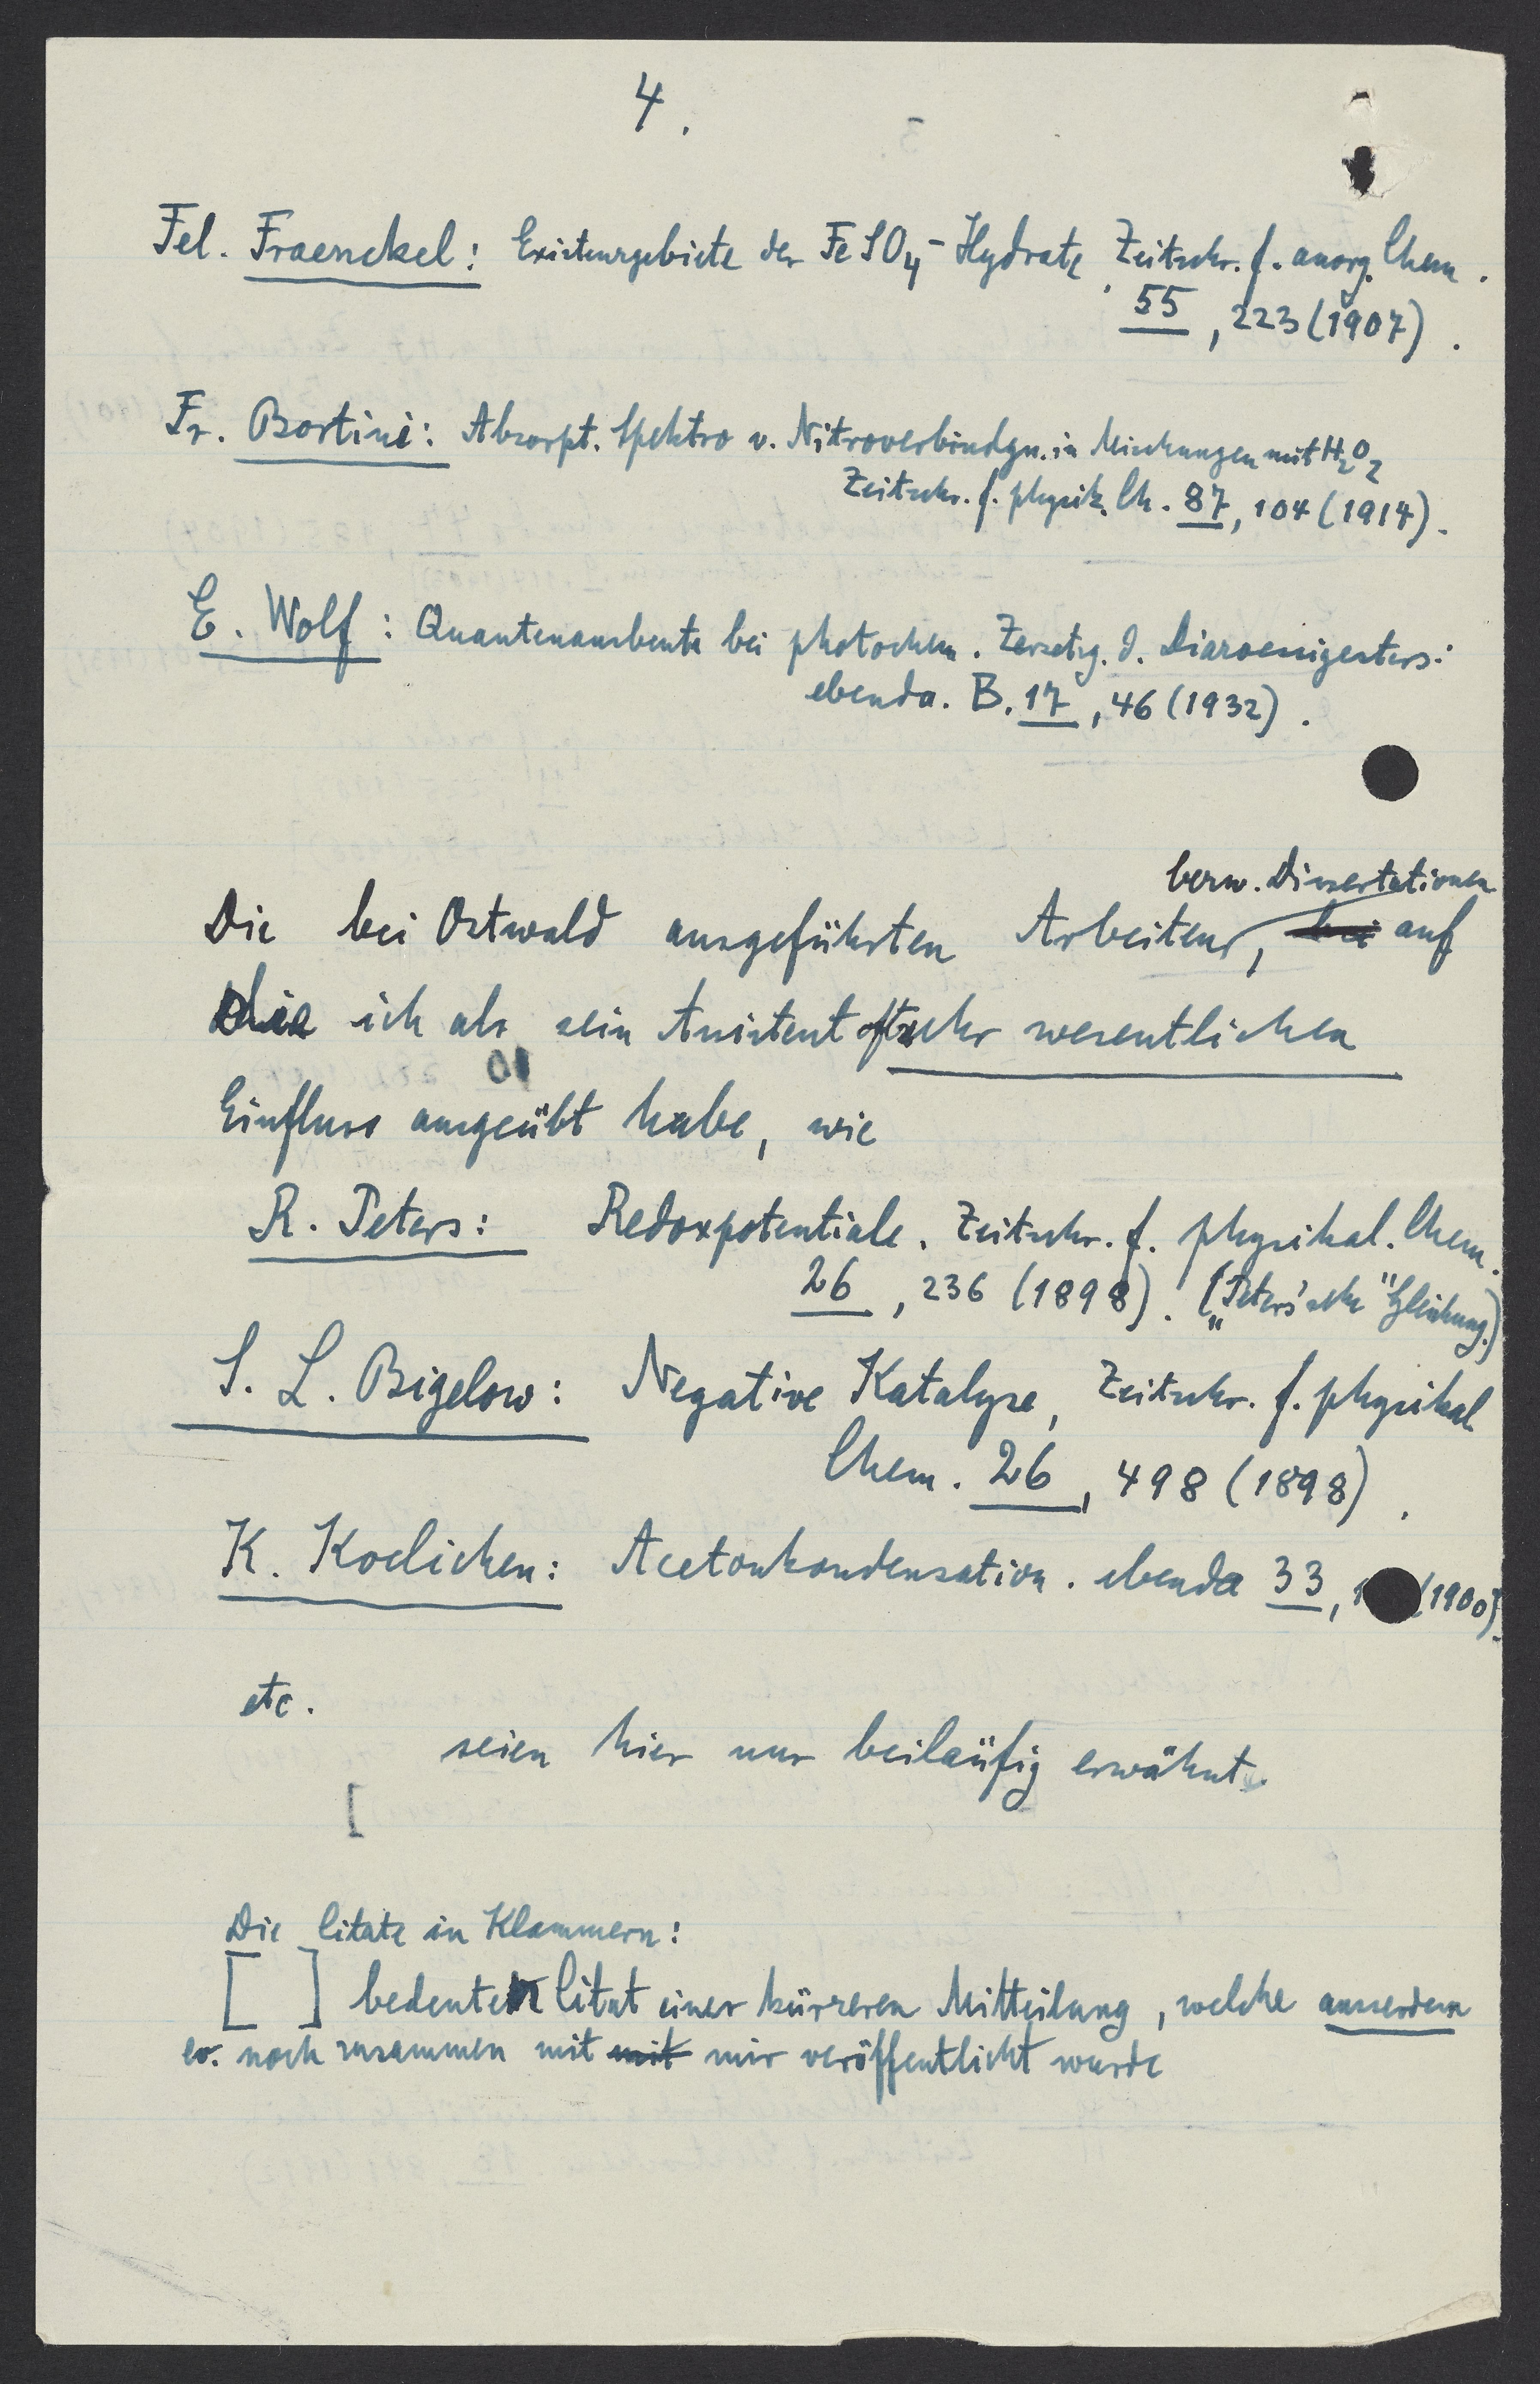 4.
Fel. Fraenckel: Existenzgebiete der FeSO4-Hydrate. Zeitschr. f. anorg. Chem.
55, 223 (1907).
Fr. Bortini: Absorpt. Spektro v. Nitroverbindgn. in Mischungen mit H2O2
Zeitschr. f. physik. Ch. 87, 104 (1914).
E. Wolf: Quantenausbeute bei photochem. Zersetzg. d. Diazoessigesters:
ebenda. B. 17, 46 (1932).
bezw. Dissertationen
Die bei Ostwald ausgeführten Arbeiten, bei auf
die ich als sein Assistent oft sehr wesentlichen
Einfluss ausgeübt habe, wie
R. Peters: Redoxpotentiale. Zeitschr. f. physikal. Chem.
26, 236 (1898). („Peters'sche" Gleichung.)
S. L. Bigelow: Negative Katalyse, Zeitschr. f. physikal
Chem. 26, 498 (1898).
K. Koelichen: Acetonkondensation. ebenda 33, 1 (1900).
etc.
seien hier nur beiläufig erwähnt.
[
Die Citate in Klammern:
[ ] bedeuten Citat einer kürzeren Mitteilung, welche ausserdem
ev. noch zusammen mit mit mir veröffentlicht wurde